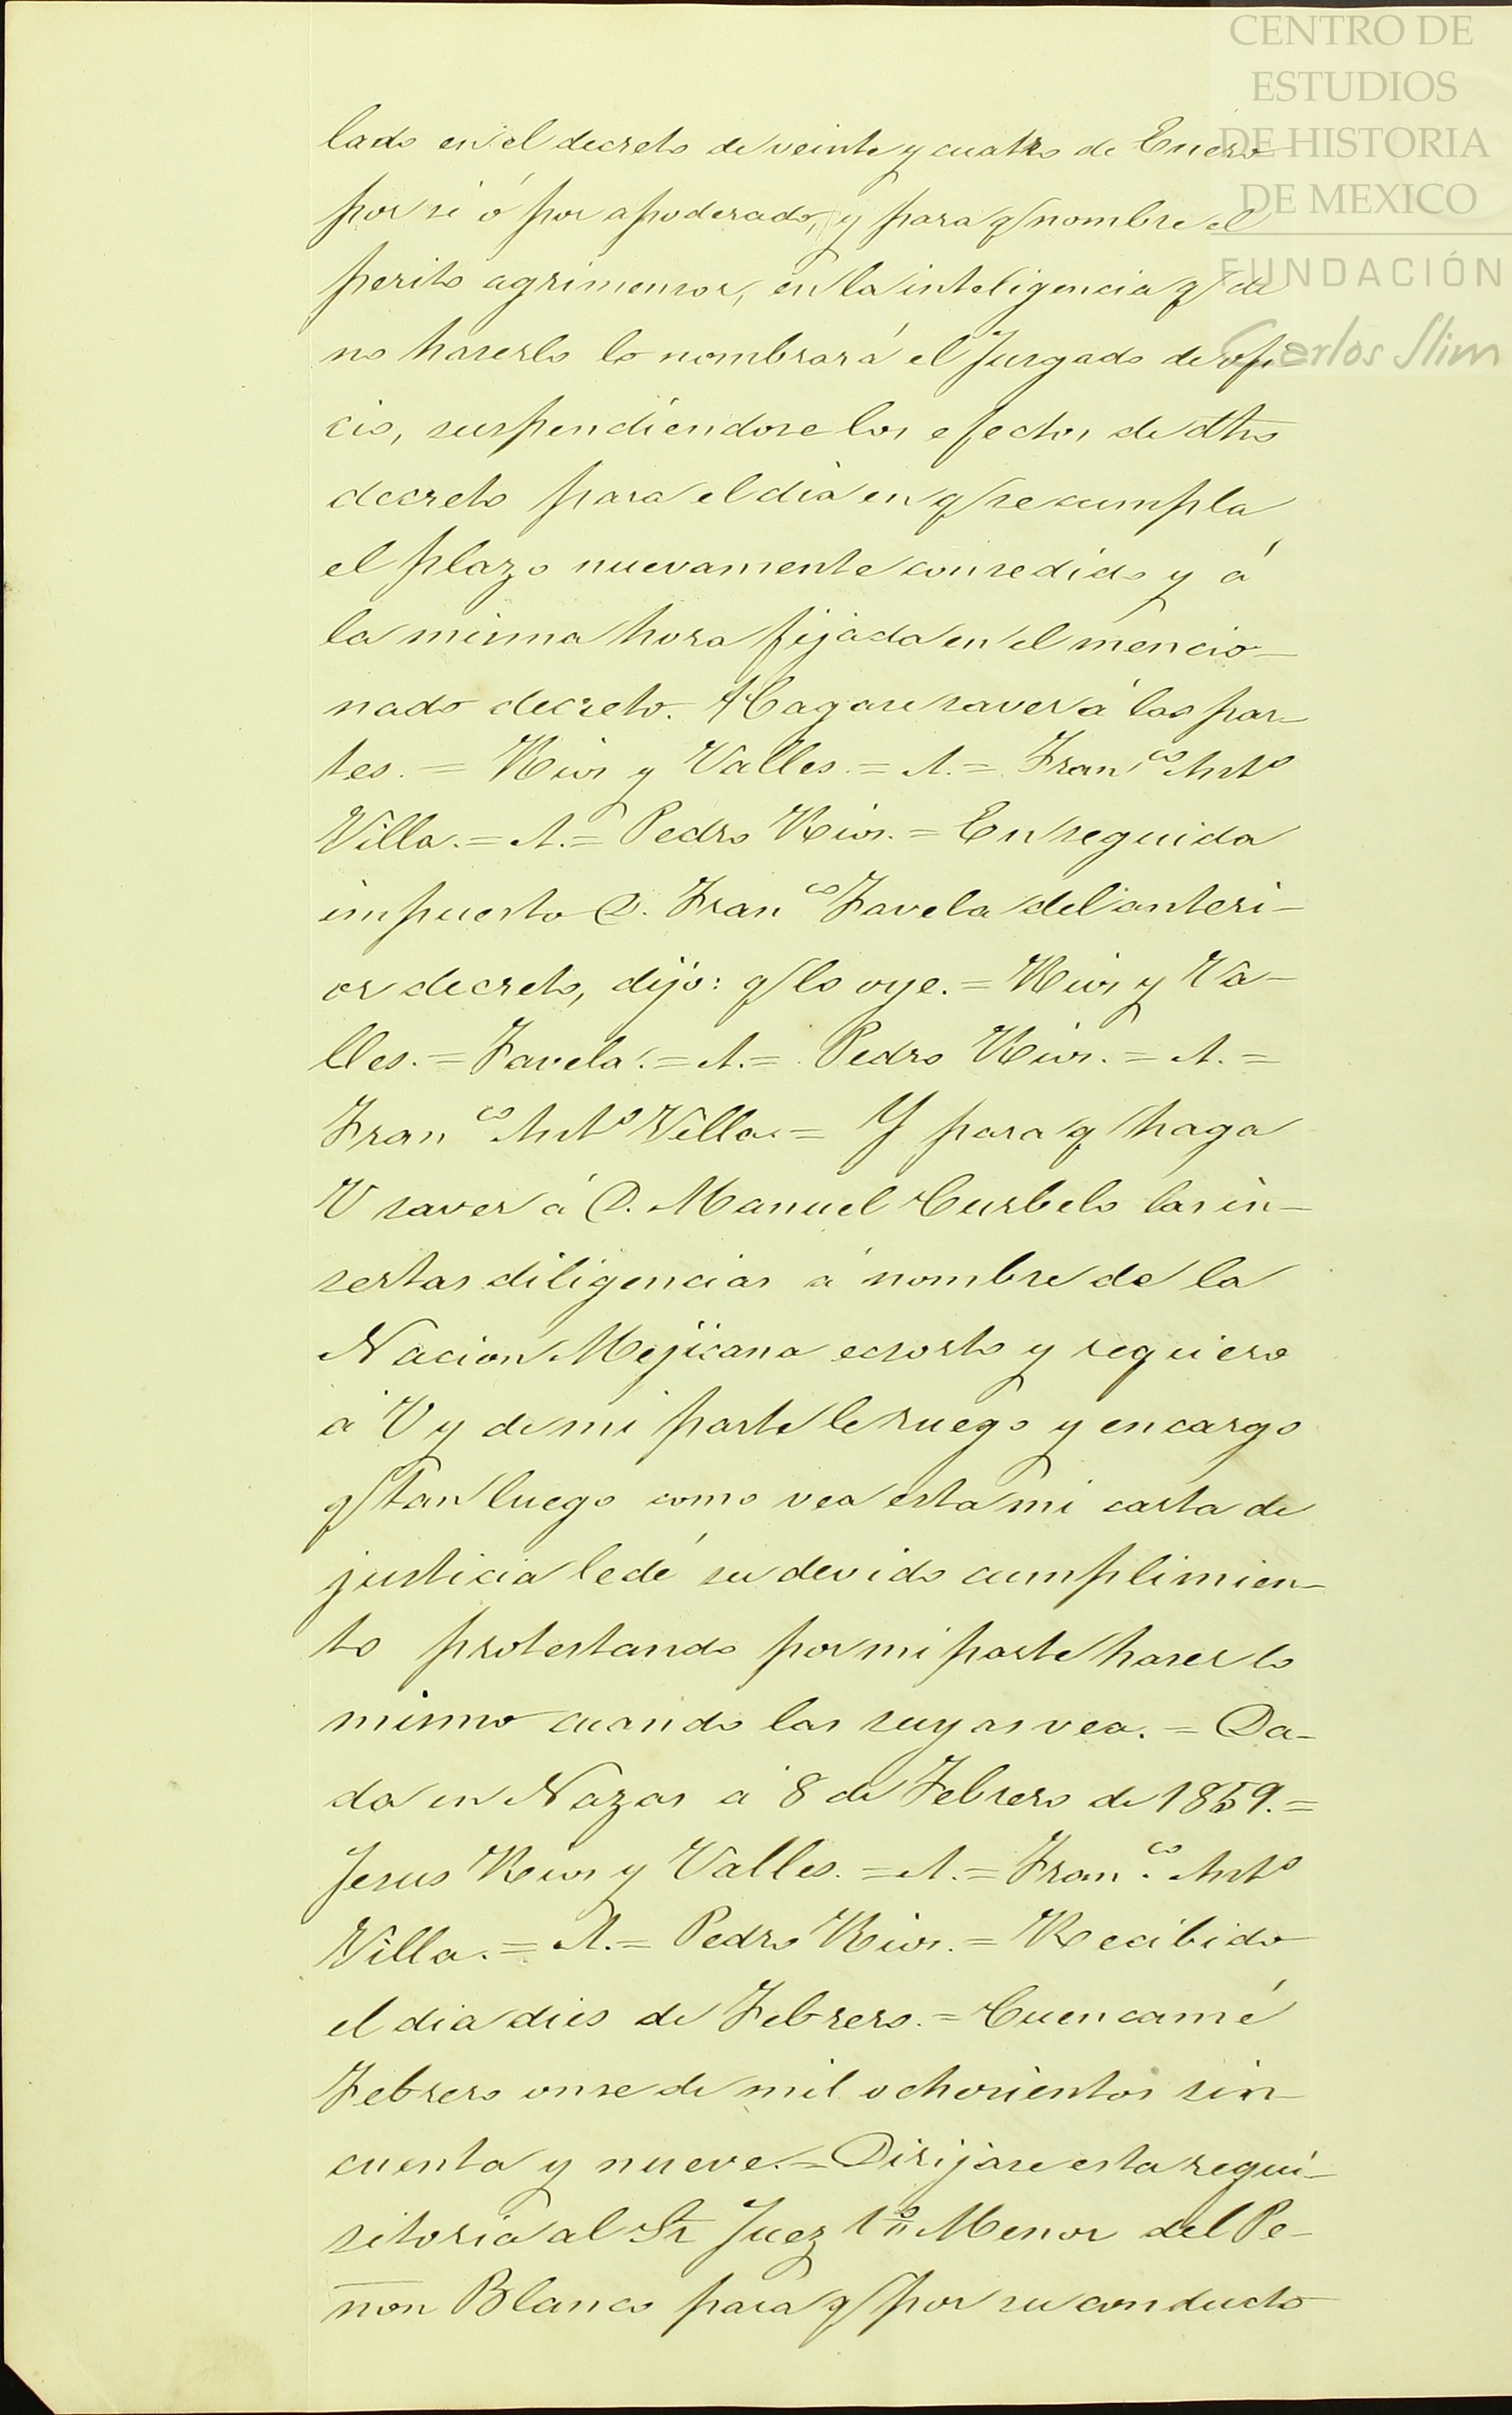 CENTRO DE
ESTUDIOS
DE HISTORIA
DE MEXICO
FUNDACIÓN
Carlos Slim
lado en el decreto de veinte y cuatro de Enero
por si ó por apoderado, y para q nombre el
perito agrimensor, en la inteligencia q de
no haserlo lo nombrará el Jusgado de ofi-
cio, suspendiéndose los efectos de dho
decreto para el dia en q se cumpla
el plazo nuevamente consedido y á
la misma hora fijada en el mencio-
nado decreto. Hagase saver á las par-
tes. = Rios y Valles. = A. = Franco Anto
Villa. = A. = Pedro Rios. = En seguida
impuesto D. Franco Favela del anteri-
or decreto, dijo: q lo oye. = Rios y Va-
lles. = Favela. = A. = Pedro Rios. = A. =
Franco Anto Villa. = Y para q haga
V saver á D. Manuel Curbelo las in-
sertas diligencias á nombre de la
Nacion Mejicana ecsorto y requiero
á V y de mi parte le ruego y encargo
q tan luego como vea esta mi carta de
justicia le dé su devido cumplimien-
to protestando por mi parte haser lo
mismo cuando las suyas vea. = Da-
da en Nazas á 8 de Febrero de 1859. =
Jesus Rios y Valles. = A. = Franco. Anto
Villa. = A. = Pedro Rios. = Recibido
el dia dies de Febrero. = Cuencamé
Febrero onse de mil ochosientos sin-
cuenta y nueve. = Dirijase esta requi-
sitoria al Sr Juez 1o Menor del Pe-
ñon Blanco para q por su conducto